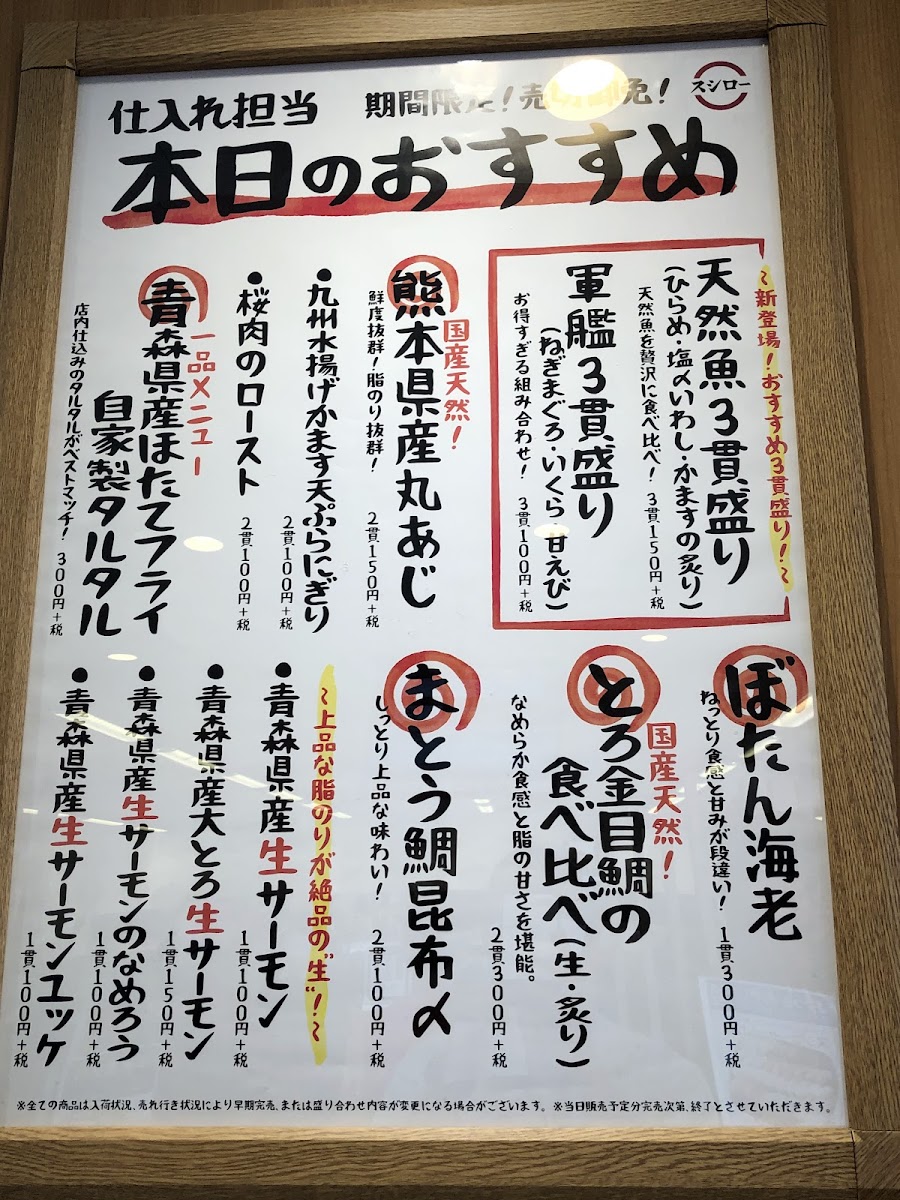 仕入れ担当
期間限定!売切御免!
スシロー
本日のおすすめ
~新登場!おすすめ3貫盛り!~
天然魚3貫盛り
(ひらめ・塩〆いわし・かますの炙り)
天然魚を贅沢に食べ比べ! 3貫150円+税
軍艦3貫盛り
(ねぎまぐろ・いくら・甘えび)
お得すぎる組み合わせ! 3貫100円+税
国産天然!
熊本県産丸あじ
鮮度抜群!脂のり抜群! 2貫150円+税
●九州水揚げかます天ぷらにぎり
2貫100円+税
●桜肉のロースト
2貫100円+税
一品メニュー
青森県産ほたてフライ
自家製タルタル
店内仕込みのタルタルがベストマッチ! 300円+税
ぼたん海老
ねっとり食感と甘みが段違い! 1貫300円+税
国産天然!
とろ金目鯛の
食べ比べ(生・炙り)
なめらか食感と脂の甘さを堪能。
2貫300円+税
まとう鯛昆布〆
しっとり上品な味わい! 2貫100円+税
~上品な脂のりが絶品の"生"!~
●青森県産生サーモン
1貫100円+税
●青森県産大とろ生サーモン
1貫150円+税
●青森県産生サーモンのなめろう
1貫100円+税
●青森県産生サーモンユッケ
1貫100円+税
※全ての商品は入荷状況、売れ行き状況により早期完売、または盛り合わせ内容が変更になる場合がございます。※当日販売予定分完売次第、終了とさせていただきます。